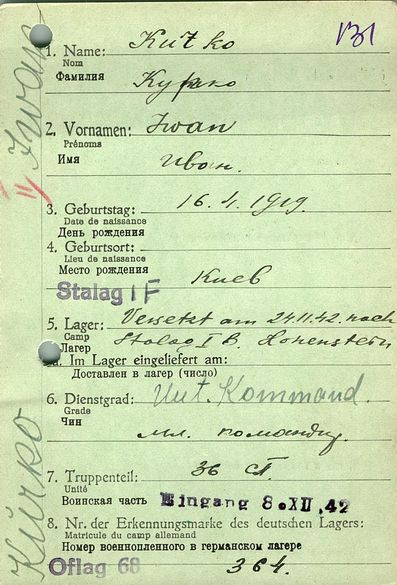 131
1. Name: Kutko
Nom
Фамилия
Iwan
2. Vornamen: Iwan
Prénoms
Имя Иван.
3. Geburtstag: 16.4.1919.
Date de naissance
День рождения
4. Geburtsort:
Lieu de naissance
Место рождения
Киев
Stalag IF
5. Lager: Versetzt am 24.11.42. nach
Camp Stalag I B. Hohenstein
Лагер
Im Lager eingeliefert am:
Доставлен в лагер (число)
6. Dienstgrad: Unt. Kommand.
Grade
Чин
мл. командир.
7. Truppenteil: 36
Unité
Воинская часть Eingang 8.XII.42
8. Nr. der Erkennungsmarke des deutschen Lagers:
Matricule du camp allemand
Номер военнопленного в германском лагере
Oflag 68 364.